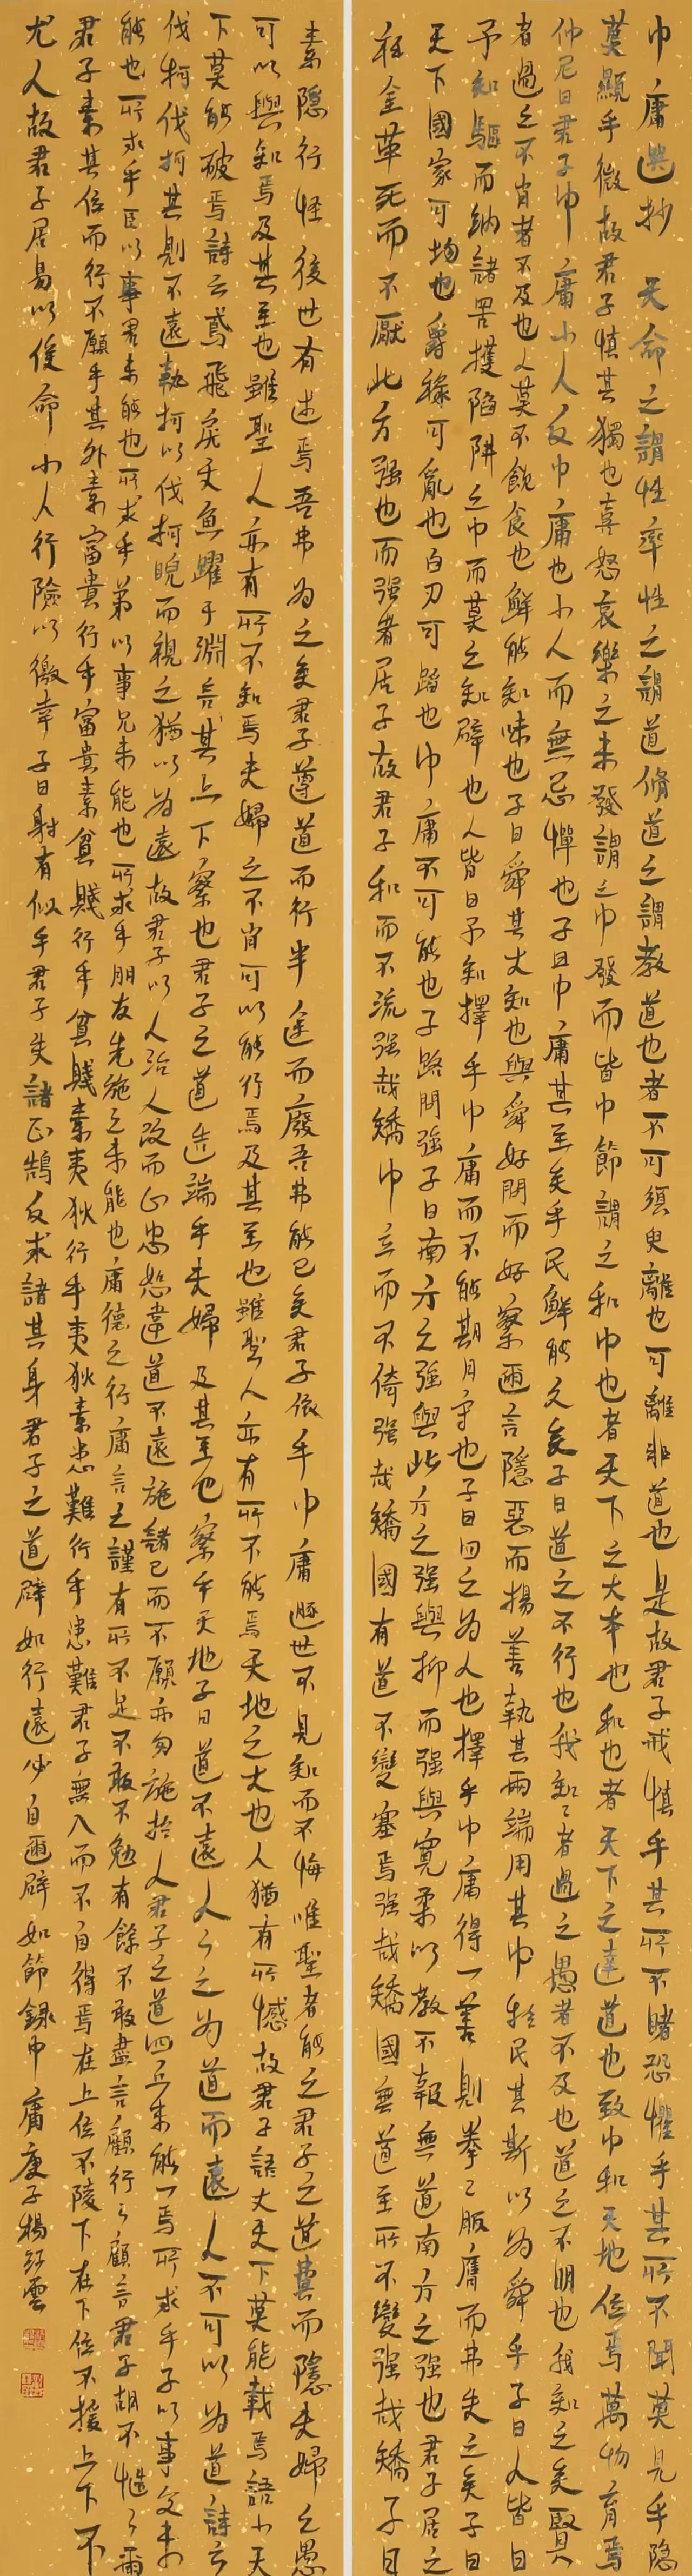 中庸選抄 天命之謂性率性之謂道脩道之謂教道也者不可須臾離也可離非道也是故君子戒慎乎其所不睹恐懼乎其所不聞莫見乎隐
莫顯乎微故君子慎其獨也喜怒哀樂之未發謂之中發而皆中節謂之和中也者天下之大本也和也者天下之達道也致中和天地位焉萬物育焉
仲尼曰君子中庸小人反中庸也小人而無忌憚也子曰中庸其至矣乎民鮮能久矣子曰道之不行也我知之者過之愚者不及也道之不明也我知之矣賢
者過之不肖者不及也人莫不飲食也鮮能知味也子曰舜其大知也與舜好問而好察邇言隱惡而揚善執其兩端用其中於民其斯以為舜乎子曰人皆曰
予知驅而納諸罟擭陷阱之中而莫之知辟也人皆曰予知擇乎中庸而不能期月守也子曰回之為人也擇乎中庸得一善則拳〻服膺而弗失之矣子曰
天下國家可均也爵祿可亂也白刃可蹈也中庸不可能也子路問強子曰南方之強與北方之强與抑而强與寬柔以教不報無道南方之强也君子居之
衽金革死而不厭北方强也而强者居子故君子和而不流强哉矯中立而不倚强哉矯國有道不變塞焉强哉矯國無道至死不變强哉矯子曰
素隱行怪後世有述焉吾弗為之矣君子遵道而行半途而廢吾弗能已矣君子依乎中庸遯世不見知而不悔唯聖者能之君子之道費而隱夫婦之愚
可以與知焉及其至也雖聖人亦有所不知焉夫婦之不肖可以能行焉及其至也雖聖人亦有所不能焉天地之大也人猶有所憾故君子語大天下莫能載焉語小天
下莫能破焉詩云鳶飛戾天魚躍于淵言其上下察也君子之道造端乎夫婦及其至也察乎天地子曰道不遠人人之為道而遠人不可以為道詩云
伐柯伐柯其則不遠執柯以伐柯睨而視之猶以為遠故君子以人治人改而止忠恕違道不遠施諸己而不願亦勿施於人君子之道四丘未能一焉所求乎子以事父未
能也所求乎臣以事君未能也所求乎弟以事兄未能也所求乎朋友先施之未能也庸德之行庸言之謹有所不足不敢不勉有餘不敢盡言顧行行顧言君子胡不慥慥爾
君子素其位而行不願乎其外素富貴行乎富貴素貧賤行乎貧賤素夷狄行乎夷狄素患難行乎患難君子無入而不自得焉在上位不陵下在下位不援上下不
尤人故君子居易以俟命小人行險以徼幸子曰射有似乎君子失諸正鵠反求諸其身君子之道辟如行遠必自邇辟如節錄中庸庚子楊紅雲